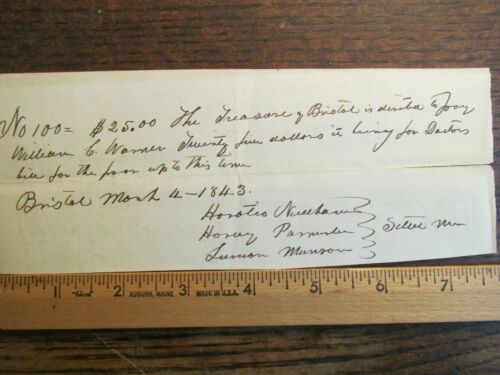 No 100 = $25.00 The Treasure of Bristol is directed to pay
William C. Warner Twenty five dollars it being for Doctors
bill for the poor up to this time
Bristol March 4 - 1843.
Horatio Needham
Harvey
Luman Munson
Select Men
1 2 3 4 5 6 7
AUBURN, MAINE MADE IN U.S.A.